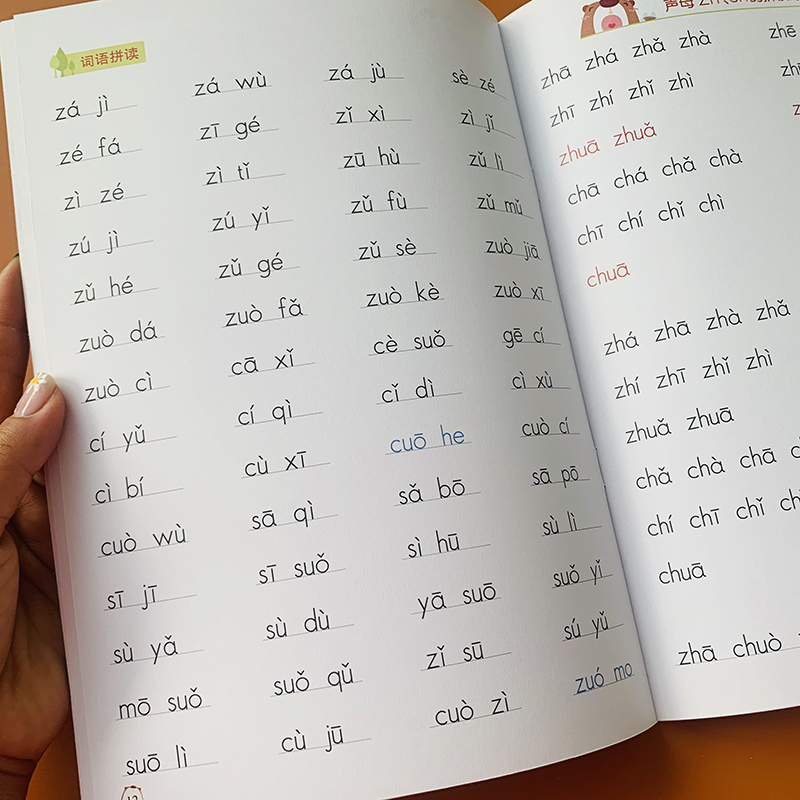 词语拼读
zá jì zá wù zá jù sè zé
zé fá zī gé zǐ xì zì jǐ
zì zé zì tǐ zū hù zǔ lì
zú jì zú yǐ zǔ fù zǔ mǔ
zǔ hé zǔ gé zǔ sè zuò jiā
zuò dá zuò fǎ zuò kè zuò xī
zuò cì cā xǐ cè suǒ gē cí
cí yǔ cí qì cǐ dì cì xù
cì bí cù xī cuō he cuò cí
cuò wù sā qì sǎ bō sā pō
sī jī sī suǒ sì hū sù lì
sù yǎ sù dù yā suō suǒ yǐ
mō suǒ suǒ qǔ zǐ sū sú yǔ
suō lì cù jū cuò zì zuó mo
12
zhā zhá zhǎ zhà zhē
zhī zhí zhǐ zhì
zhuā zhuǎ
chā chá chǎ chà
chī chí chǐ chì
chuā
zhá zhā zhà zhǎ
zhí zhī zhǐ zhì
zhuǎ zhuā
chǎ chà chā
chí chī chǐ
chuā
zhā chuò